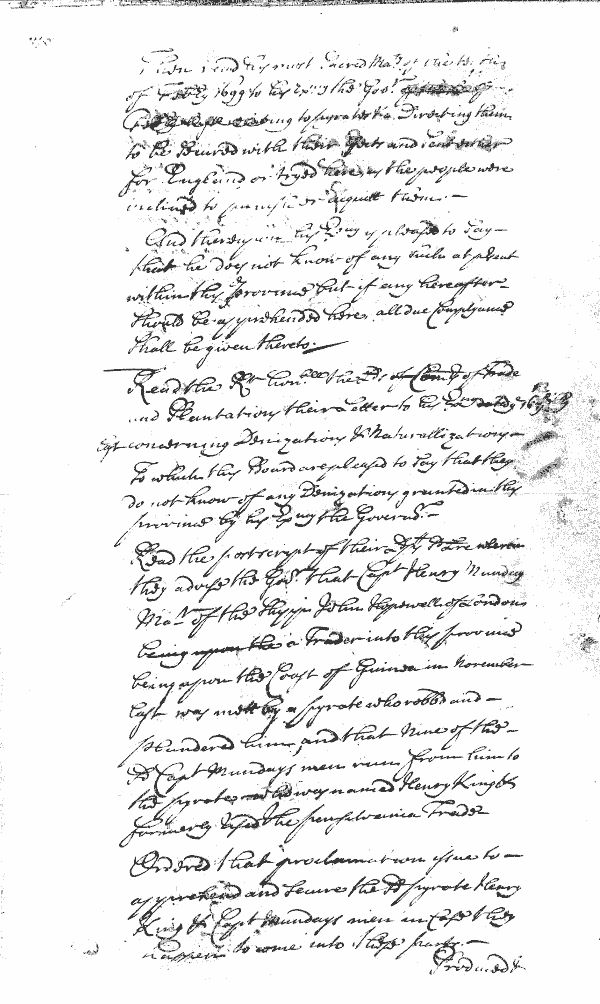 Then read his most Sacred Maty of the
of 1699 to his Exy the Govr
to pyrates &c. Directing them
to be Secured with their Effects and sent either
for England or tryed here as the people were
inclined to punish or acquitt them. —
And thereupon his Exncy is pleased to Say —
that he does not know of any Such at psent
within this province but if any hereafter —
Should be apprehended here all due Complyance
Shall be given thereto. —
Read the Rt honble the Lds of Comrs of Trade
and Plantations their Letter to his Exncy
concerning Denizations & Naturallizations —
To which this Board are pleased to Say that they
do not know of any Denizations granted in this
province by his Exncy the Governr. —
Read the postscript of their wherein
they advise the Govr that Capt Henry Munday
Mar of the Shipp John Hopewell of London
being upon the a Trader into this province
being upon the Coast of Guinea in November
last was mett by a pyrate who robbd and —
plundered him, and that Nine of the —
sd Capt Mundays men run from him to
the pyrates who was named Henry King &
formerly Used the pensilvania Trade
Ordered that proclamation issue to —
apprehend and Secure the sd pyrate Henry
King & Capt Mundays men in Case they
happen to come into these parts. —
Produced